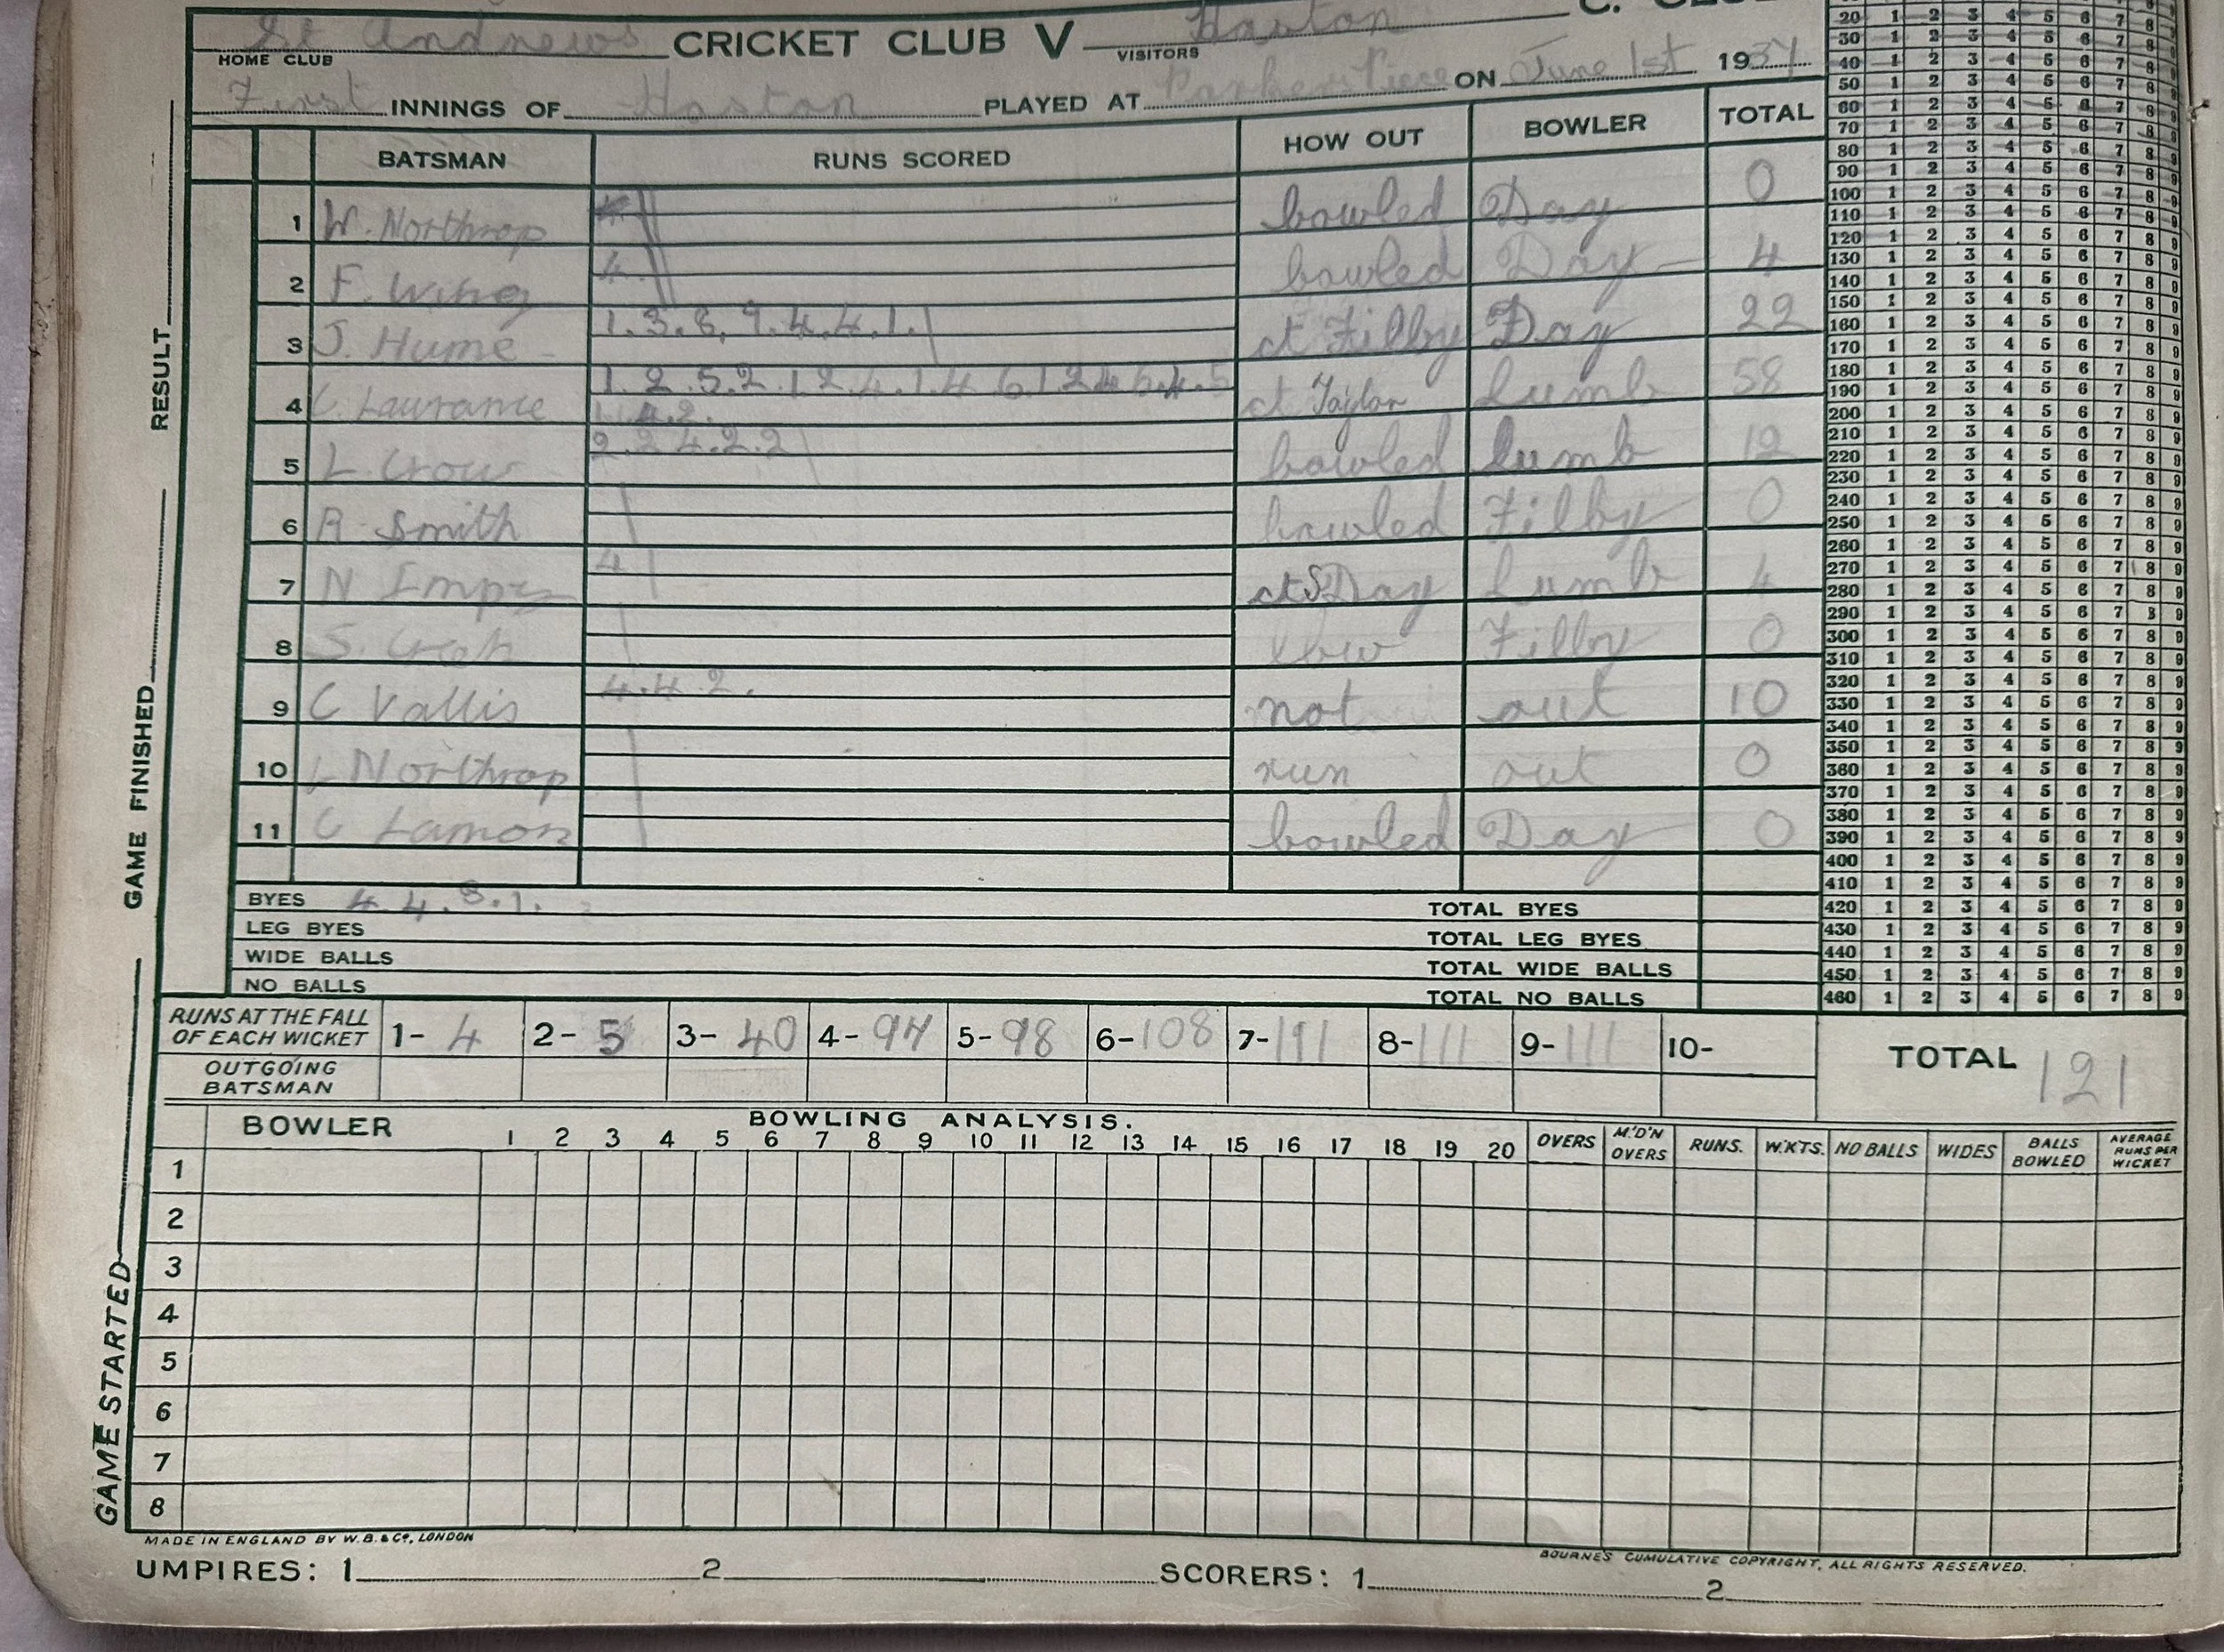 St Andrews CRICKET CLUB V Haston C. CLUB
HOME CLUB VISITORS
First INNINGS OF Haston PLAYED AT Parker Piece ON June 1st 1937
BATSMAN RUNS SCORED HOW OUT BOWLER TOTAL
1 W. Northrop bowled Day 0
2 F. Wing 4 bowled Day 4
3 J. Hume 1.3. 4.4.1. ct Filby Day 22
4 C. Laurance 1.2.5.2.1.2.4.1.4 6.1.2 ct Taylor Lumb 58
4.2.
5 L. Crow 2.2 4.2.2 bowled Lumb 12
6 R. Smith bowled Filby 0
7 N Impy 4 ct S Day Lumb 4
8 S. lbw Filby 0
9 C Vallis 4.4 2. not out 10
10 L Northrop run out 0
11 C Lamon bowled Day 0
BYES 4.4.3.1. TOTAL BYES
LEG BYES TOTAL LEG BYES
WIDE BALLS TOTAL WIDE BALLS
NO BALLS TOTAL NO BALLS
RUNS AT THE FALL
OF EACH WICKET 1- 4 2- 5 3- 40 4- 94 5- 98 6- 108 7- 111 8- 111 9- 111 10-
TOTAL 121
OUTGOING
BATSMAN
BOWLING ANALYSIS.
BOWLER 1 2 3 4 5 6 7 8 9 10 11 12 13 14 15 16 17 18 19 20 OVERS M'D'N OVERS RUNS. W.KTS. NO BALLS WIDES BALLS BOWLED AVERAGE RUNS PER WICKET
1
2
3
4
5
6
7
8
MADE IN ENGLAND BY W.B. & Co, LONDON
BOURNE'S CUMULATIVE COPYRIGHT, ALL RIGHTS RESERVED.
UMPIRES: 1 2 SCORERS: 1 2
RESULT
GAME FINISHED
GAME STARTED
20 1 2 3 4 5 6 7 8 9
30 1 2 3 4 5 6 7 8 9
40 1 2 3 4 5 6 7 8 9
50 1 2 3 4 5 6 7 8 9
60 1 2 3 4 5 6 7 8 9
70 1 2 3 4 5 6 7 8 9
80 1 2 3 4 5 6 7 8 9
90 1 2 3 4 5 6 7 8 9
100 1 2 3 4 5 6 7 8 9
110 1 2 3 4 5 6 7 8 9
120 1 2 3 4 5 6 7 8 9
130 1 2 3 4 5 6 7 8 9
140 1 2 3 4 5 6 7 8 9
150 1 2 3 4 5 6 7 8 9
160 1 2 3 4 5 6 7 8 9
170 1 2 3 4 5 6 7 8 9
180 1 2 3 4 5 6 7 8 9
190 1 2 3 4 5 6 7 8 9
200 1 2 3 4 5 6 7 8 9
210 1 2 3 4 5 6 7 8 9
220 1 2 3 4 5 6 7 8 9
230 1 2 3 4 5 6 7 8 9
240 1 2 3 4 5 6 7 8 9
250 1 2 3 4 5 6 7 8 9
260 1 2 3 4 5 6 7 8 9
270 1 2 3 4 5 6 7 8 9
280 1 2 3 4 5 6 7 8 9
290 1 2 3 4 5 6 7 8 9
300 1 2 3 4 5 6 7 8 9
310 1 2 3 4 5 6 7 8 9
320 1 2 3 4 5 6 7 8 9
330 1 2 3 4 5 6 7 8 9
340 1 2 3 4 5 6 7 8 9
350 1 2 3 4 5 6 7 8 9
360 1 2 3 4 5 6 7 8 9
370 1 2 3 4 5 6 7 8 9
380 1 2 3 4 5 6 7 8 9
390 1 2 3 4 5 6 7 8 9
400 1 2 3 4 5 6 7 8 9
410 1 2 3 4 5 6 7 8 9
420 1 2 3 4 5 6 7 8 9
430 1 2 3 4 5 6 7 8 9
440 1 2 3 4 5 6 7 8 9
450 1 2 3 4 5 6 7 8 9
460 1 2 3 4 5 6 7 8 9